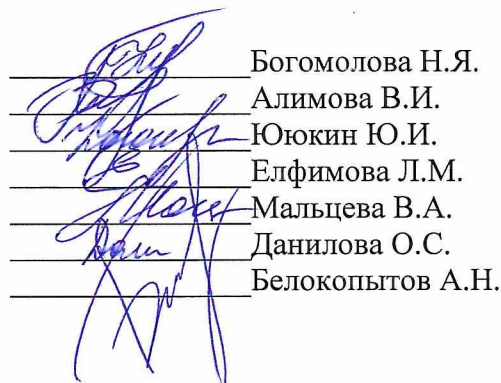 Богомолова Н.Я.
Алимова В.И.
Ююкин Ю.И.
Елфимова Л.М.
Мальцева В.А.
Данилова О.С.
Белокопытов А.Н.